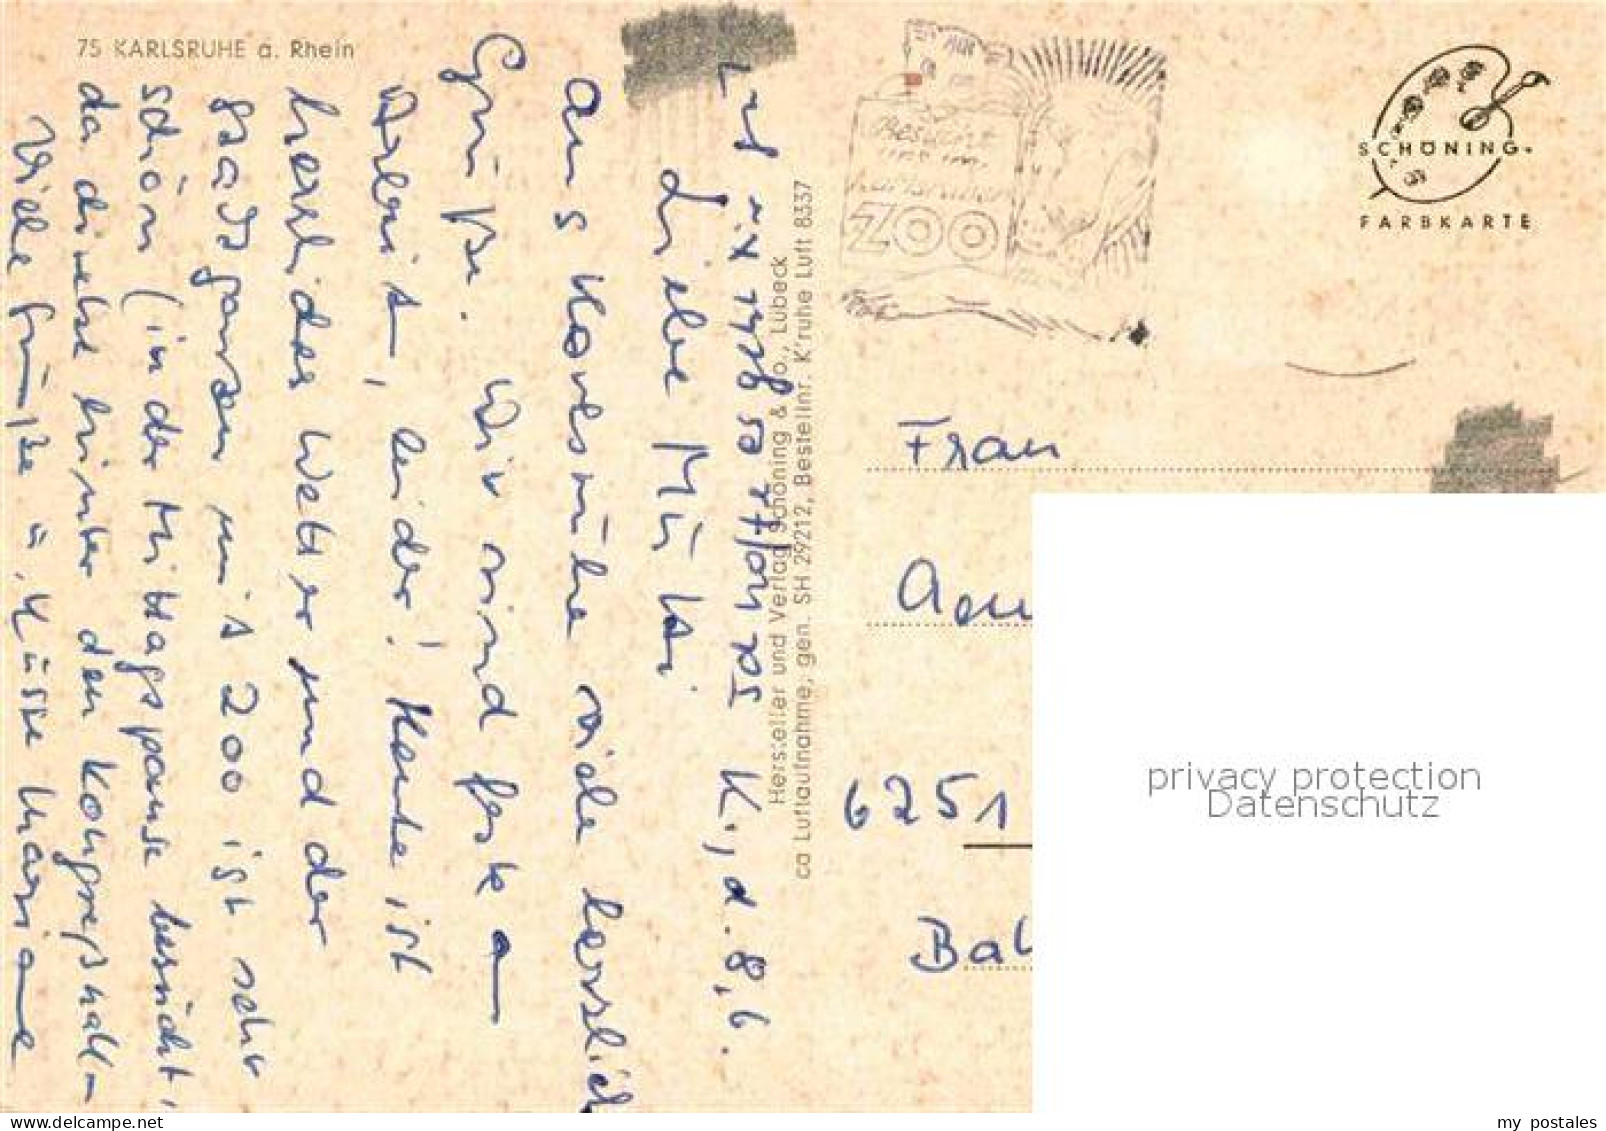 75 KARLSRUHE a. Rhein
K., d. 8.6.
Liebe Mutti
aus Karlsruhe viele herzlich
Grüße. Wir sind fest a
Arbeit, leider! Heute ist
herrliches Wetter und der
Stadtgarten mit 200 ist sehr
schön (in der Mittagspause besucht,
da direkt hinter den Kongreßhall-
Viele Grüße u. Küsse Mariane
Hersteller und Verlag Schöning & Co., Lübeck
ca Luftaufnahme, gen. SH 29212, Bestellnr. K'ruhe Luft 8337
Besucht
uns im
Karlsruher
ZOO
SCHÖNING
FARBKARTE
Frau
6251
privacy protection
Datenschutz
my postales